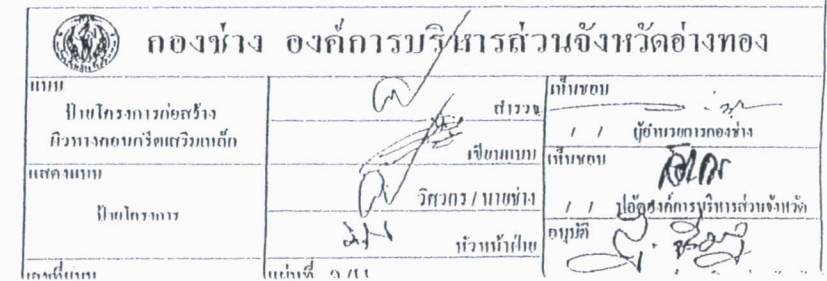 กองช่าง องค์การบริหารส่วนจังหวัดอ่างทอง
แบบ
ป้ายโครงการก่อสร้าง
ผิวทางคอนกรีตเสริมเหล็ก
แสดงแบบ
ป้ายโครงการ
เลขที่แบบ
สำรวจ
เขียนแบบ
วิศวกร / นายช่าง
หัวหน้าฝ่าย
แผ่นที่ 9/11
เห็นชอบ
/ / ผู้อำนวยการกองช่าง
เห็นชอบ
/ / ปลัดองค์การบริหารส่วนจังหวัด
อนุมัติ